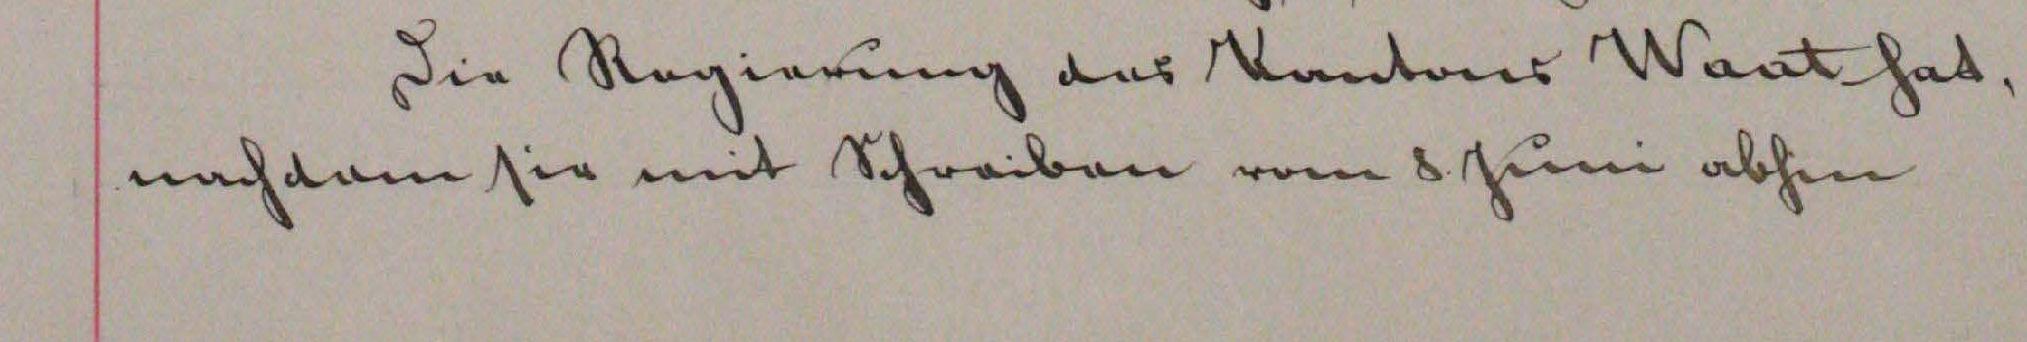 Die Regierung des Kantons Waat hat,
nachdem sie mit Schreiben vom 8. Juni abhin